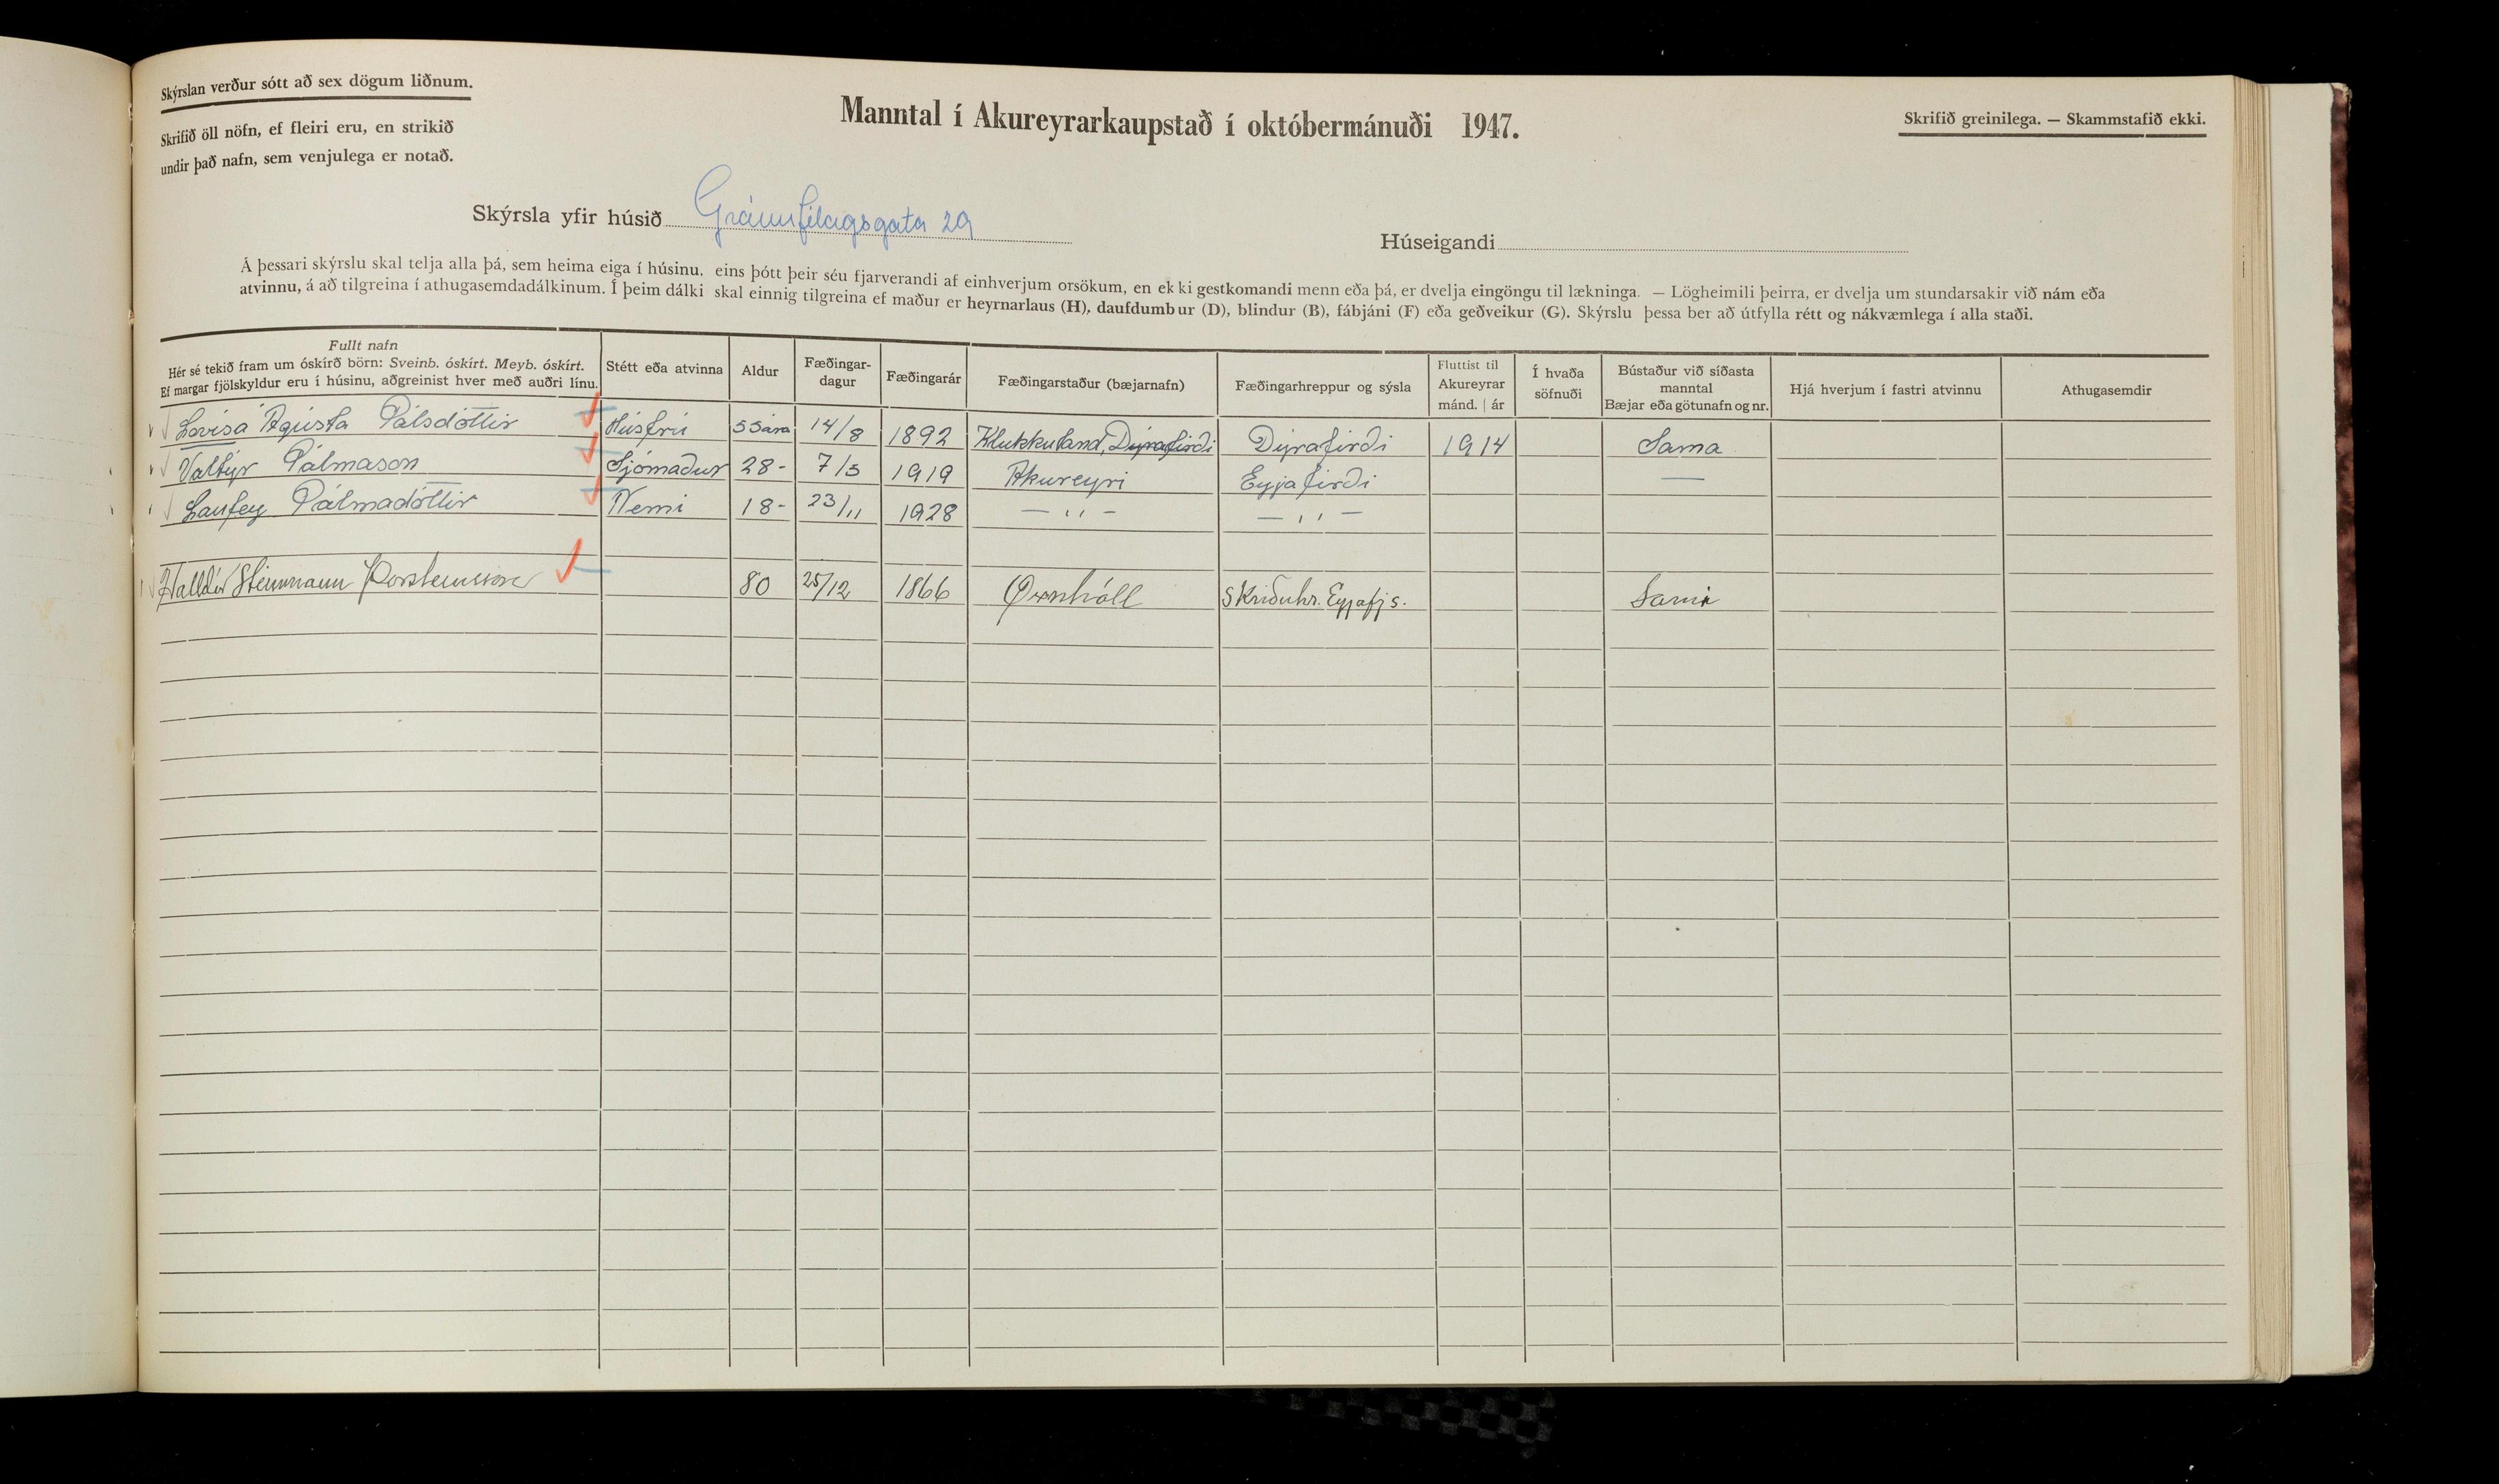 Skýrslan verður sótt að sex dögum liðnum.
Skrifið öll nöfn, ef fleiri eru, en strikið
undir það nafn, sem venjulega er notað.
Manntal í Akureyrarkaupstað í októbermánuði 1947.
Skrifið greinilega. — Skammstafið ekki.
Skýrsla yfir húsið Gránufélagsgata 29
Húseigandi
Á þessari skýrslu skal telja alla þá, sem heima eiga í húsinu, eins þótt þeir séu fjarverandi af einhverjum orsökum, en ekki gestkomandi menn eða þá, er dvelja eingöngu til lækninga. — Lögheimili þeirra, er dvelja um stundarsakir við nám eða
atvinnu, á að tilgreina í athugasemdadálkinum. Í þeim dálki skal einnig tilgreina ef maður er heyrnarlaus (H), daufdumbur (D), blindur (B), fábjáni (F) eða geðveikur (G). Skýrslu þessa ber að útfylla rétt og nákvæmlega í alla staði.
Fullt nafn
Hér sé tekið fram um óskírð börn: Sveinb. óskírt. Meyb. óskírt.
Ef margar fjölskyldur eru í húsinu, aðgreinist hver með auðri línu.
Stétt eða atvinna
Aldur
Fæðingar-
dagur
Fæðingarár
Fæðingarstaður (bæjarnafn)
Fæðingarhreppur og sýsla
Fluttist til
Akureyrar
mánd. | ár
Í hvaða
söfnuði
Bústaður við síðasta
manntal
Bæjar eða götunafn og nr.
Hjá hverjum í fastri atvinnu
Athugasemdir
Lovísa Ágústa Pálsdóttir Húsfrú 55 ára 14/8 1892 Klukkuland, Dýrafirði Dýrafirði 1914 Sama
Valtýr Pálmason Sjómaður 28 - 7/3 1919 Akureyri Eyjafirði —
Laufey Pálmadóttir Nemi 18 - 23/11 1928 — ,, — — ,, —
Halldór Steinmann Þorsteinsson 80 25/12 1866 Öxnhóll Skriðuhr. Eyjafj s. Sami